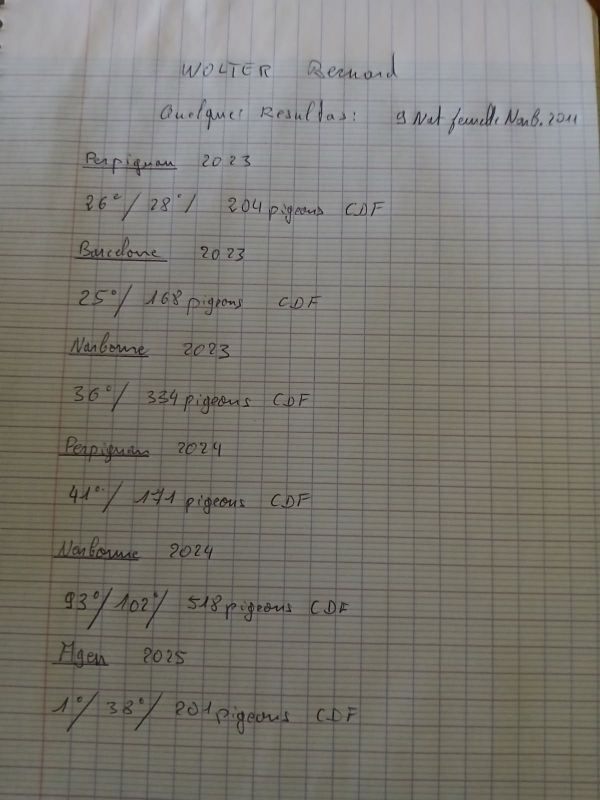 WOLTER Bernard
Quelques Resultas: 9 Nat femelle Narb. 2011
Perpignan 2023
26°/ 28°/ 204 pigeons CDF
Barcelone 2023
25°/ 168 pigeons CDF
Narbonne 2023
36°/ 334 pigeons CDF
Perpignan 2024
41°/ 171 pigeons CDF
Narbonne 2024
93°/ 102°/ 518 pigeons CDF
Agen 2025
1°/ 38°/ 201 pigeons CDF